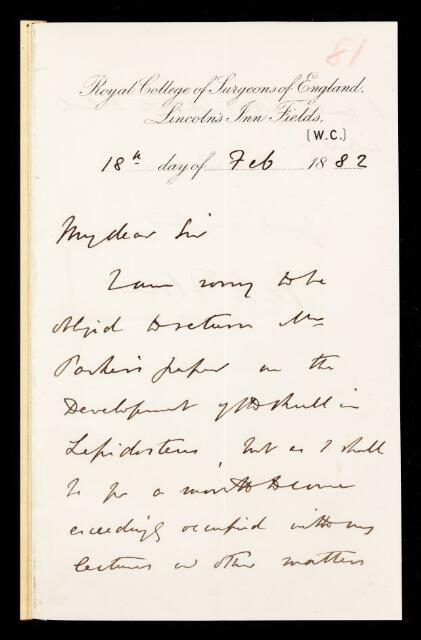 81
Royal College of Surgeons of England.
Lincoln's Inn Fields.
(W.C.)
18th day of Feb 1882
My dear Sir
I am sorry to be
obliged to return Mr
Parker's paper on the
Development of the skull in
Lepidosteus, but as I shall
be for a month to come
exceedingly occupied with my
lectures and other matters